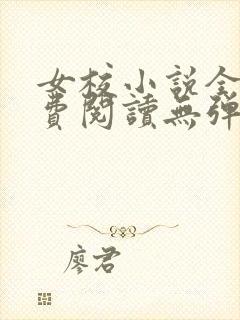 女校小说全
费閱讀無彈
廖君